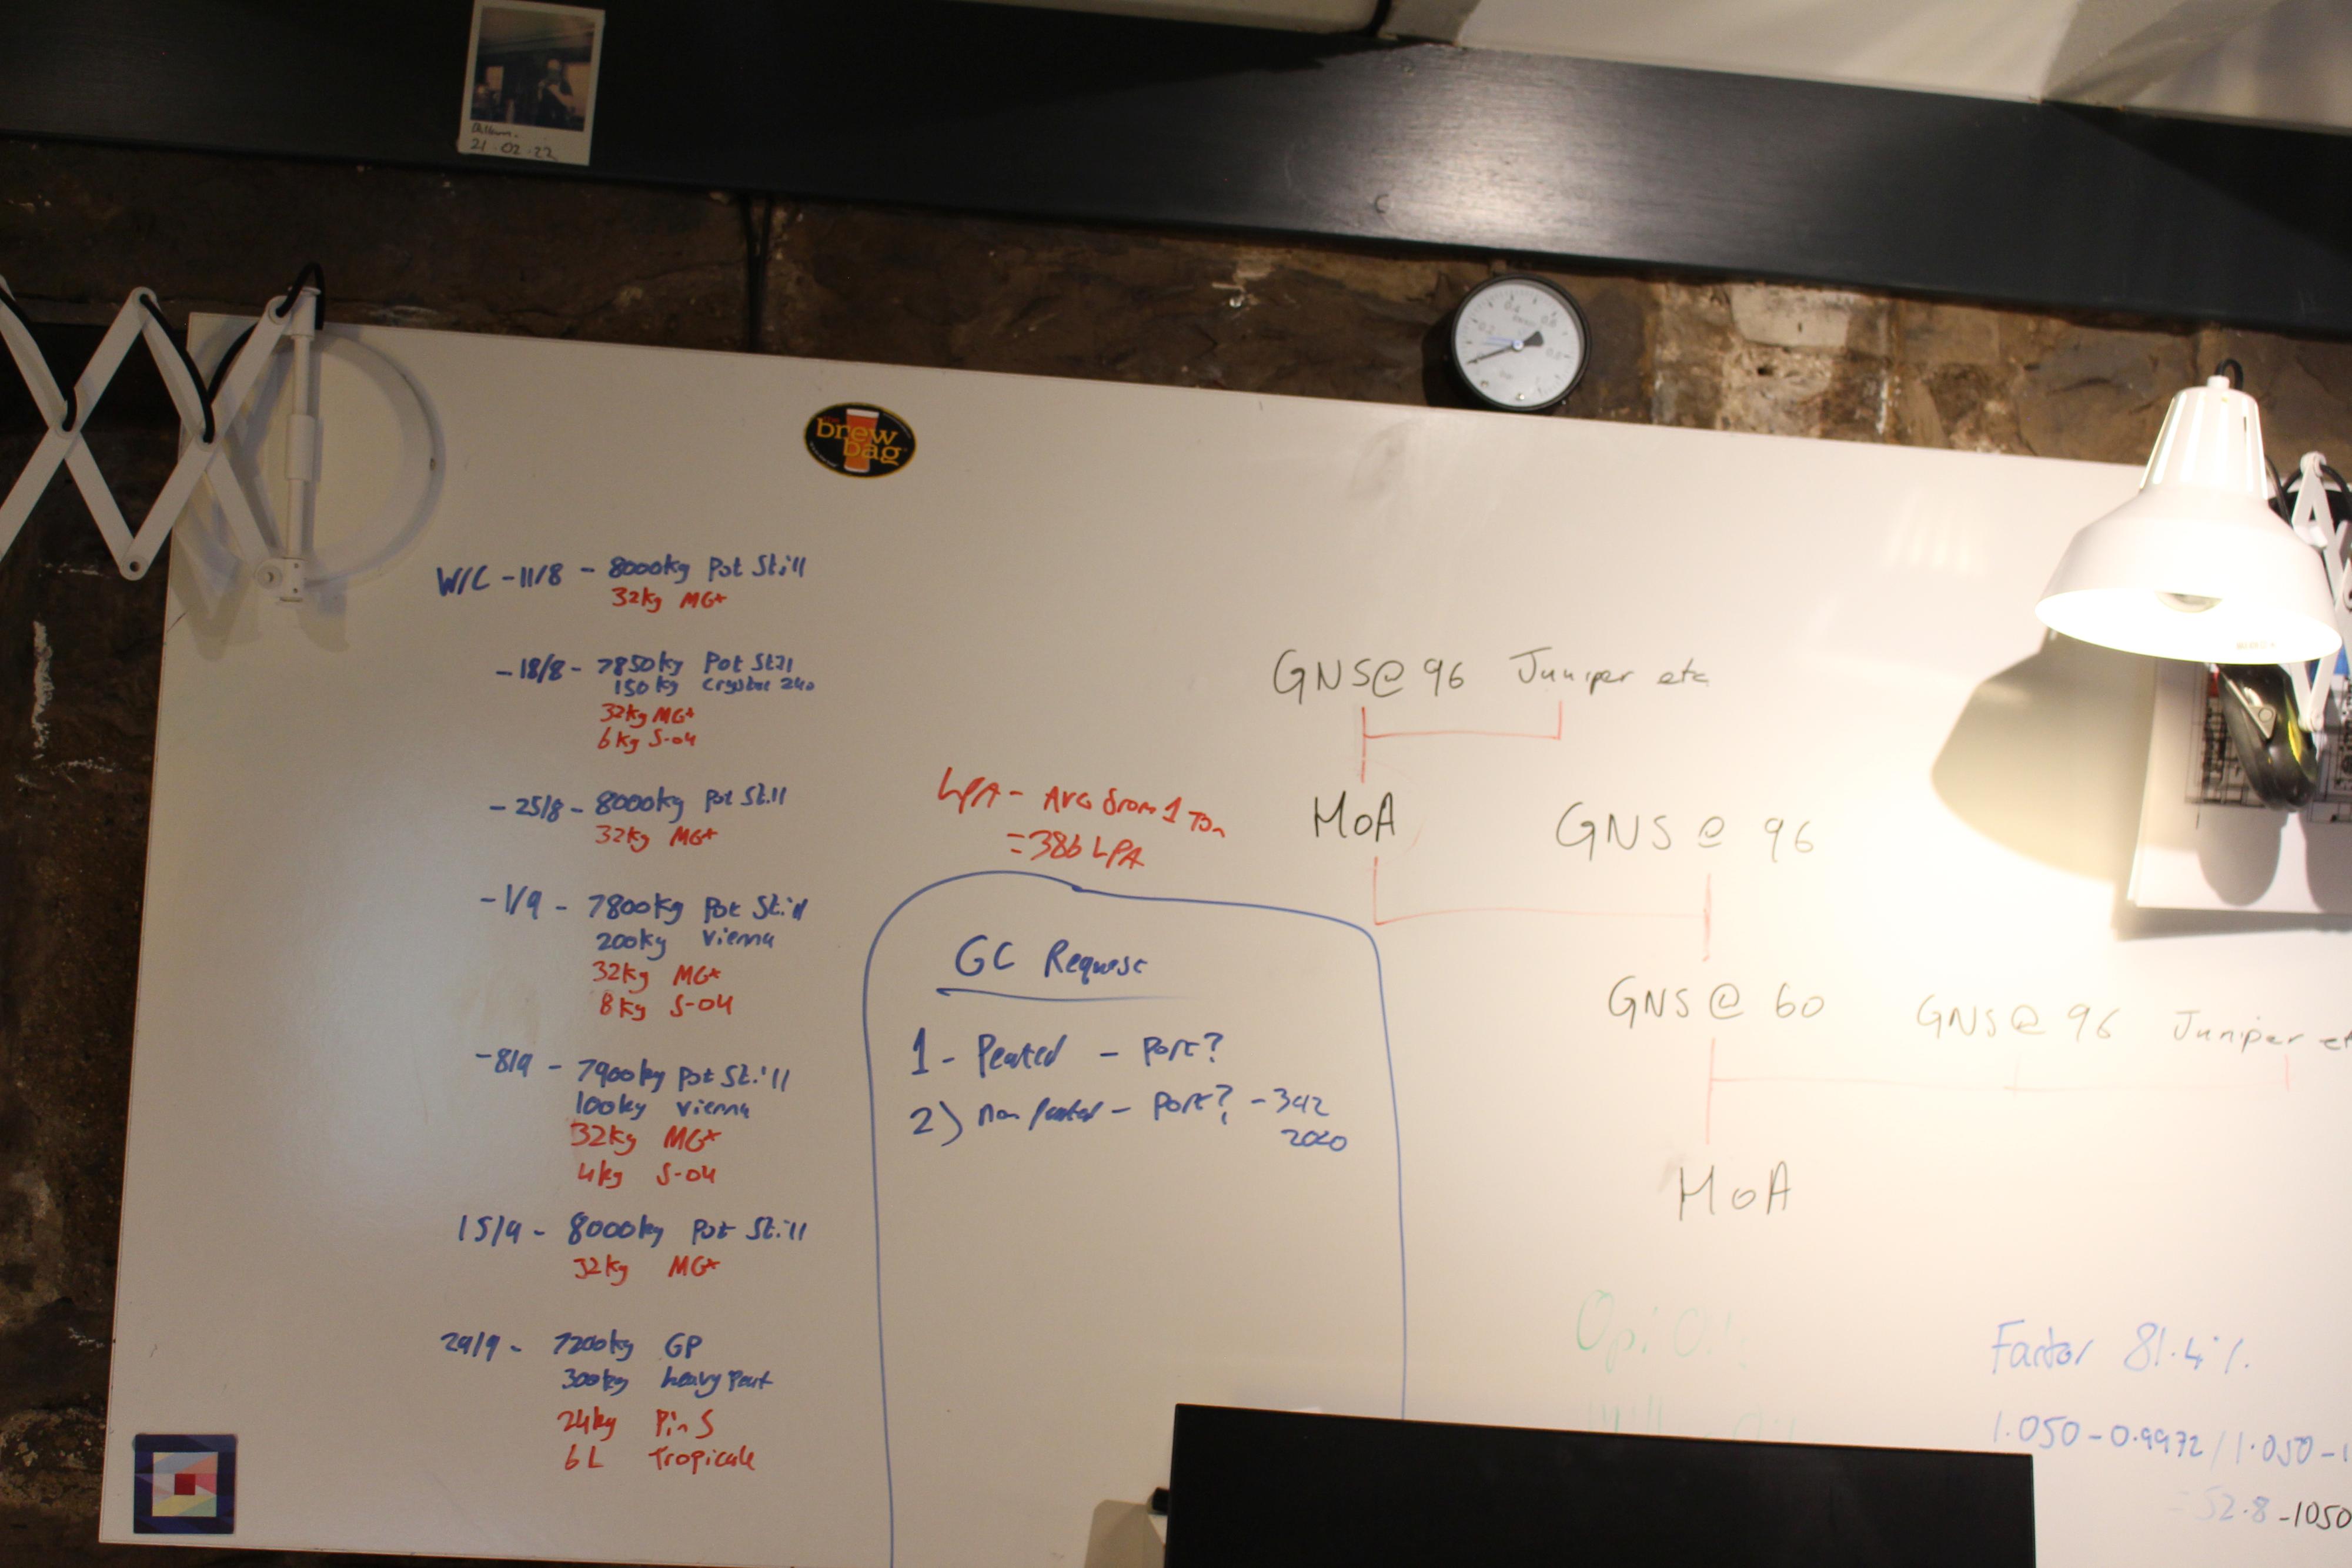 21.02.22
brew
bag
W/C - 11/8 - 8000kg Pot Still
32kg MG+
- 18/8 - 7850kg Pot Still
150kg Crystal 240
32kg MG+
6kg S-04
- 25/8 - 8000kg Pot Still
32kg MG+
- 1/9 - 7800kg Pot Still
200kg Vienna
32kg MG+
8kg S-04
- 8/9 - 7900kg Pot Still
100kg Vienna
32kg MG+
4kg S-04
15/9 - 8000kg Pot Still
32kg MG+
29/9 - 7200kg GP
300kg heavy Peat
24kg Pin S
6L Tropicale
LPA - AVG from 1 Ton
= 386 LPA
GC Request
1 - Peated - Port?
2) non peated - Port? - 342
2020
GNS @ 96 Juniper etc
MoA
GNS @ 96
GNS @ 60
GNS @ 96 Juniper et
MoA
Factor 81.4%
1.050 - 0.9972 / 1.050 - 1
= 52.8 - 1050